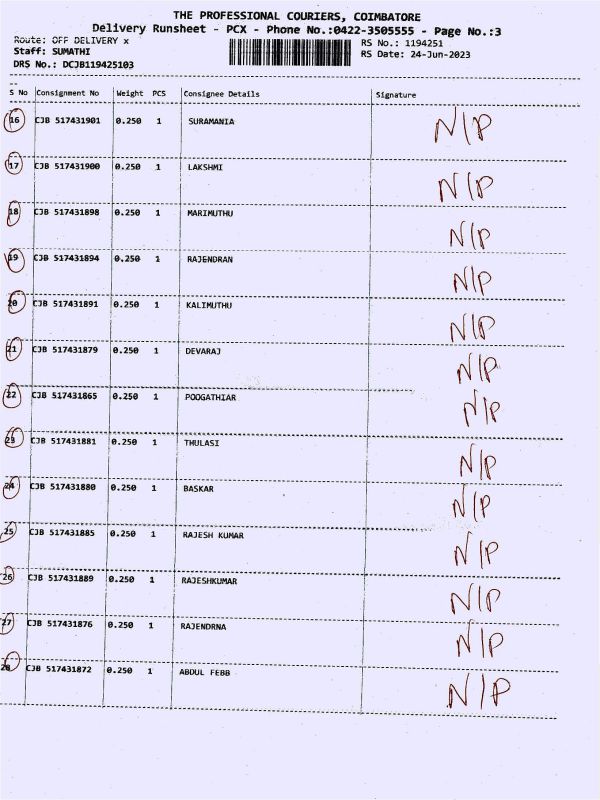 THE PROFESSIONAL COURIERS, COIMBATORE
Delivery Runsheet - PCX - Phone No.:0422-3505555 - Page No.:3
Route: OFF DELIVERY x RS No.: 1194251
Staff: SUMATHI RS Date: 24-Jun-2023
DRS No.: DCJB119425103
S No Consignment No Weight PCS Consignee Details Signature
16 CJB 517431901 0.250 1 SURAMANIA N/P
17 CJB 517431900 0.250 1 LAKSHMI N/P
18 CJB 517431898 0.250 1 MARIMUTHU N/P
19 CJB 517431894 0.250 1 RAJENDRAN N/P
20 CJB 517431891 0.250 1 KALIMUTHU N/P
21 CJB 517431879 0.250 1 DEVARAJ N/P
22 CJB 517431865 0.250 1 POOGATHIAR N/P
23 CJB 517431881 0.250 1 THULASI N/P
24 CJB 517431880 0.250 1 BASKAR N/P
25 CJB 517431885 0.250 1 RAJESH KUMAR N/P
26 CJB 517431889 0.250 1 RAJESHKUMAR N/P
27 CJB 517431876 0.250 1 RAJENDRNA N/P
28 CJB 517431872 0.250 1 ABDUL FEBB N/P